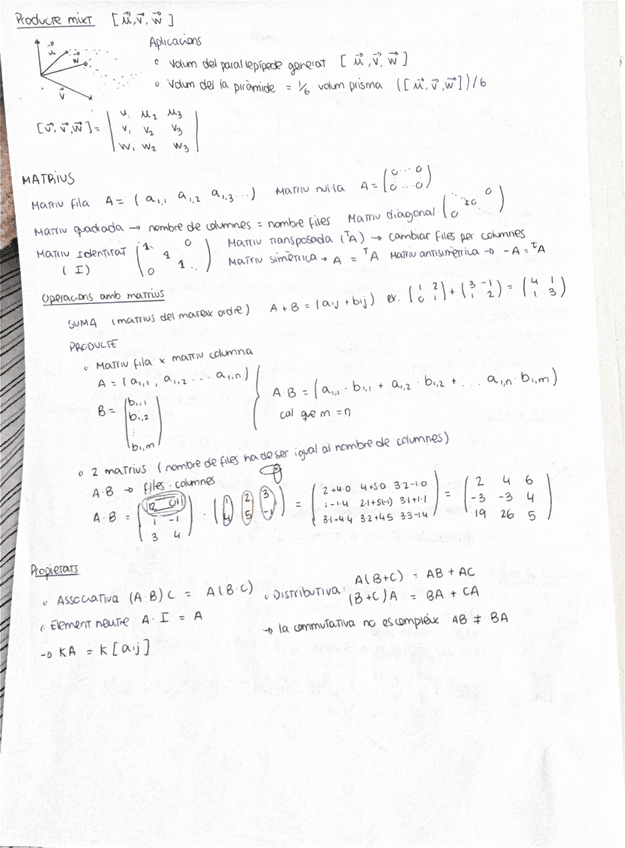 Producte mixt [u⃗, v⃗, w⃗]
Aplicacions
u⃗ w⃗ v⃗
◦ Volum del paral·lepípede generat [u⃗, v⃗, w⃗]
◦ Volum del la piràmide = 1/6 volum prisma ([u⃗, v⃗, w⃗])/6
[u⃗, v⃗, w⃗] = | u₁ u₂ u₃ |
| v₁ v₂ v₃ |
| w₁ w₂ w₃ |
MATRIUS
Matriu fila A = (a₁,₁ a₁,₂ a₁,₃ ...) Matriu nul·la A = (0 ... 0
0 ... 0)
Matriu quadrada → nombre de columnes = nombre files Matriu diagonal
Matriu Identitat (1 0
1
0 1) Matriu transposada (ᵀA) → canviar files per columnes
(I) Matriu simètrica → A = ᵀA Matriu antisimètrica → -A = ᵀA
Operacions amb matrius
SUMA (matrius del mateix ordre) A + B = (aij + bij) ex. (1 2
0 1) + (3 -1
1 2) = (4 1
1 3)
PRODUCTE
◦ Matriu fila × matriu columna
A = (a₁,₁, a₁,₂ ... a₁,n)
B = (b₁,₁
b₁,₂
⋮
b₁,m)
A B = (a₁,₁ · b₁,₁ + a₁,₂ · b₁,₂ + ... a₁,n · b₁,m)
cal que m = n
◦ 2 matrius (nombre de files ha de ser igual al nombre de columnes)
A·B → files · columnes
A·B = (2 0
1 -1
3 4) · (1 2 3
4 5 -1) = (2+4·0 4+5·0 3·2-1·0
1-1·4 2·1+5(-1) 3·1+1·1
3·1+4·4 3·2+4·5 3·3-1·4) = (2 4 6
-3 -3 4
19 26 5)
Propietats
◦ Associativa (A·B)C = A(B·C)
◦ Distributiva: A(B+C) = AB + AC
(B+C)A = BA + CA
◦ Element neutre A·I = A
→ la commutativa no es compleix AB ≠ BA
→ KA = K[aij]